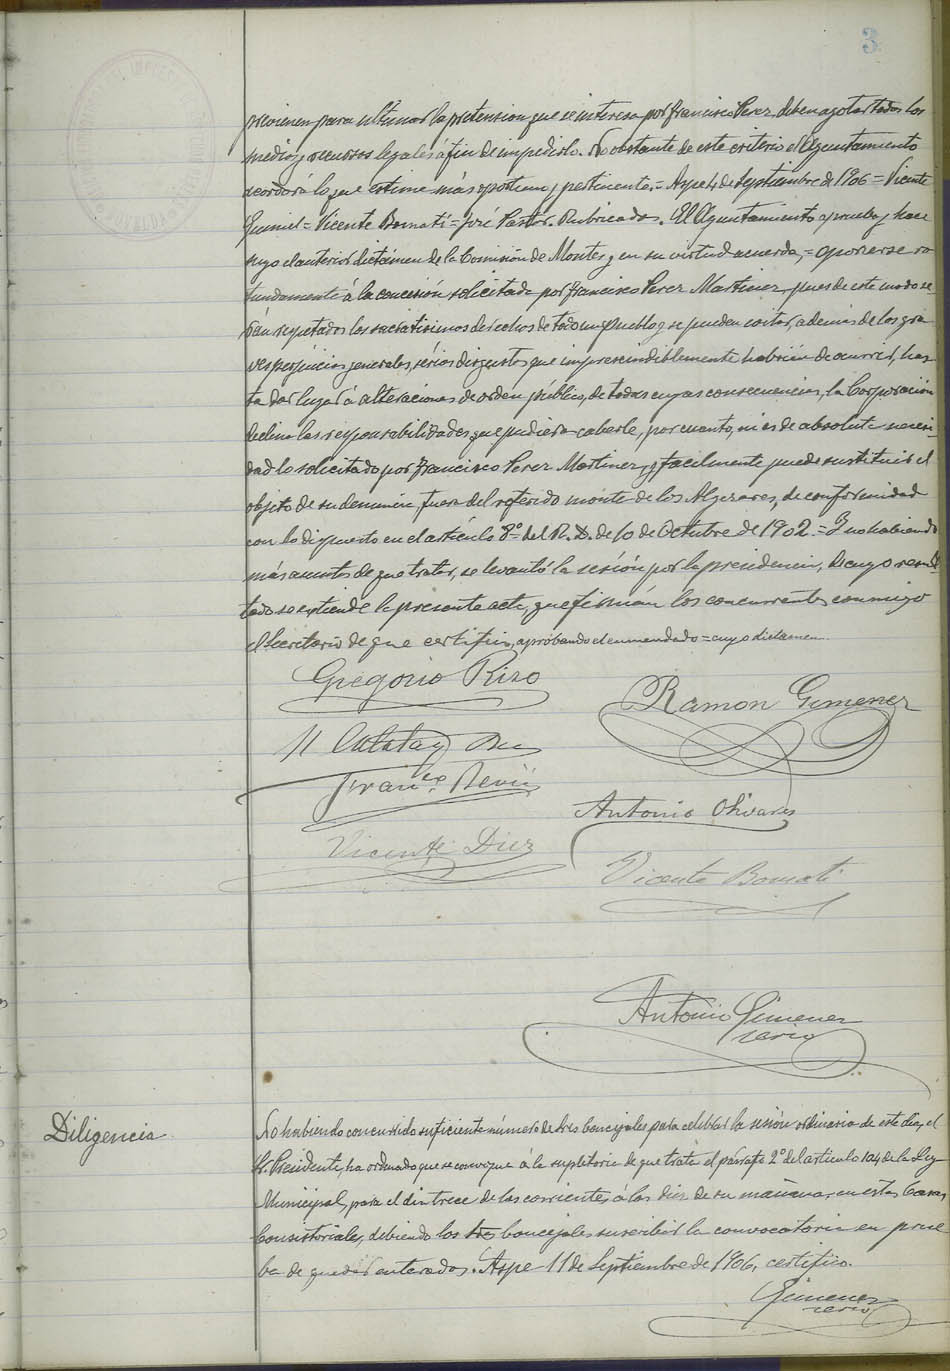 3
previenen para ultimar la pretension que se interesa por Francisco Perez, deben agotar todos los
medios y recursos legales á fin de impedirlo. No obstante de este criterio el Ayuntamiento
acordará lo que estime más oportuno y pertinente.= Aspe 4 de Septiembre de 1906 = Vicente
= Vicente Bomatí = José Pastor. Rubricados. El Ayuntamiento aprueba y hace
suyo el anterior dictámen de la Comisión de Montes y en su virtud acuerda,= oponerse ro
tundamente á la concesión solicitada por Francisco Perez Martinez, pues de este modo se-
rán respetados los sacratisimos derechos de todo un pueblo y se pueden evitar, además de los gra
ves perjuicios generales, sérios disgustos que imprescindiblemente habrían de ocurrir, has
ta dar lugar á alteraciones de orden público, de todas cuyas consecuencias, la Corporación
declina las responsabilidades que pudiera caberle, por cuanto, ni es de absoluta necesi-
dad lo solicitado por Francisco Perez Martinez, y facilmente puede sustituir el
objeto de su denuncia fuera del referido monte de los Algezares, de conformidad
con lo dispuesto en el artículo 8º del R. D. de 10 de Octubre de 1902.= Y no habiendo
más asuntos de que tratar, se levantó la sesión por la presidencia, de cuyo resul-
tado se extiende la presente acta, que firmán los concurrentes conmigo
el Secretario de que certifico, aprobando el enmendado = cuyo dictamen.
Gregorio Rizo
Ramon Gimenez
Franco
Antonio Olivares
Vicente Diez
Vicente Bomati
Antonio Gimenez
serio
Diligencia
No habiendo concurrido suficiente número de Sres Concejales para celebrar la sesión ordinaria de este dia, el
Sr. Presidente, ha ordenado que se convoque á la supletoria de que trata el párrafo 2º del articulo 104 de la Ley
Municipal, para el dia trece de los corrientes, á las diez de su mañana, en estas Casas
Consistoriales, debiendo los Sres Concejales suscribir la convocatoria en prue
ba de quedar enterados. Aspe 11 de Septiembre de 1906, certifico.
Gimenez
serio